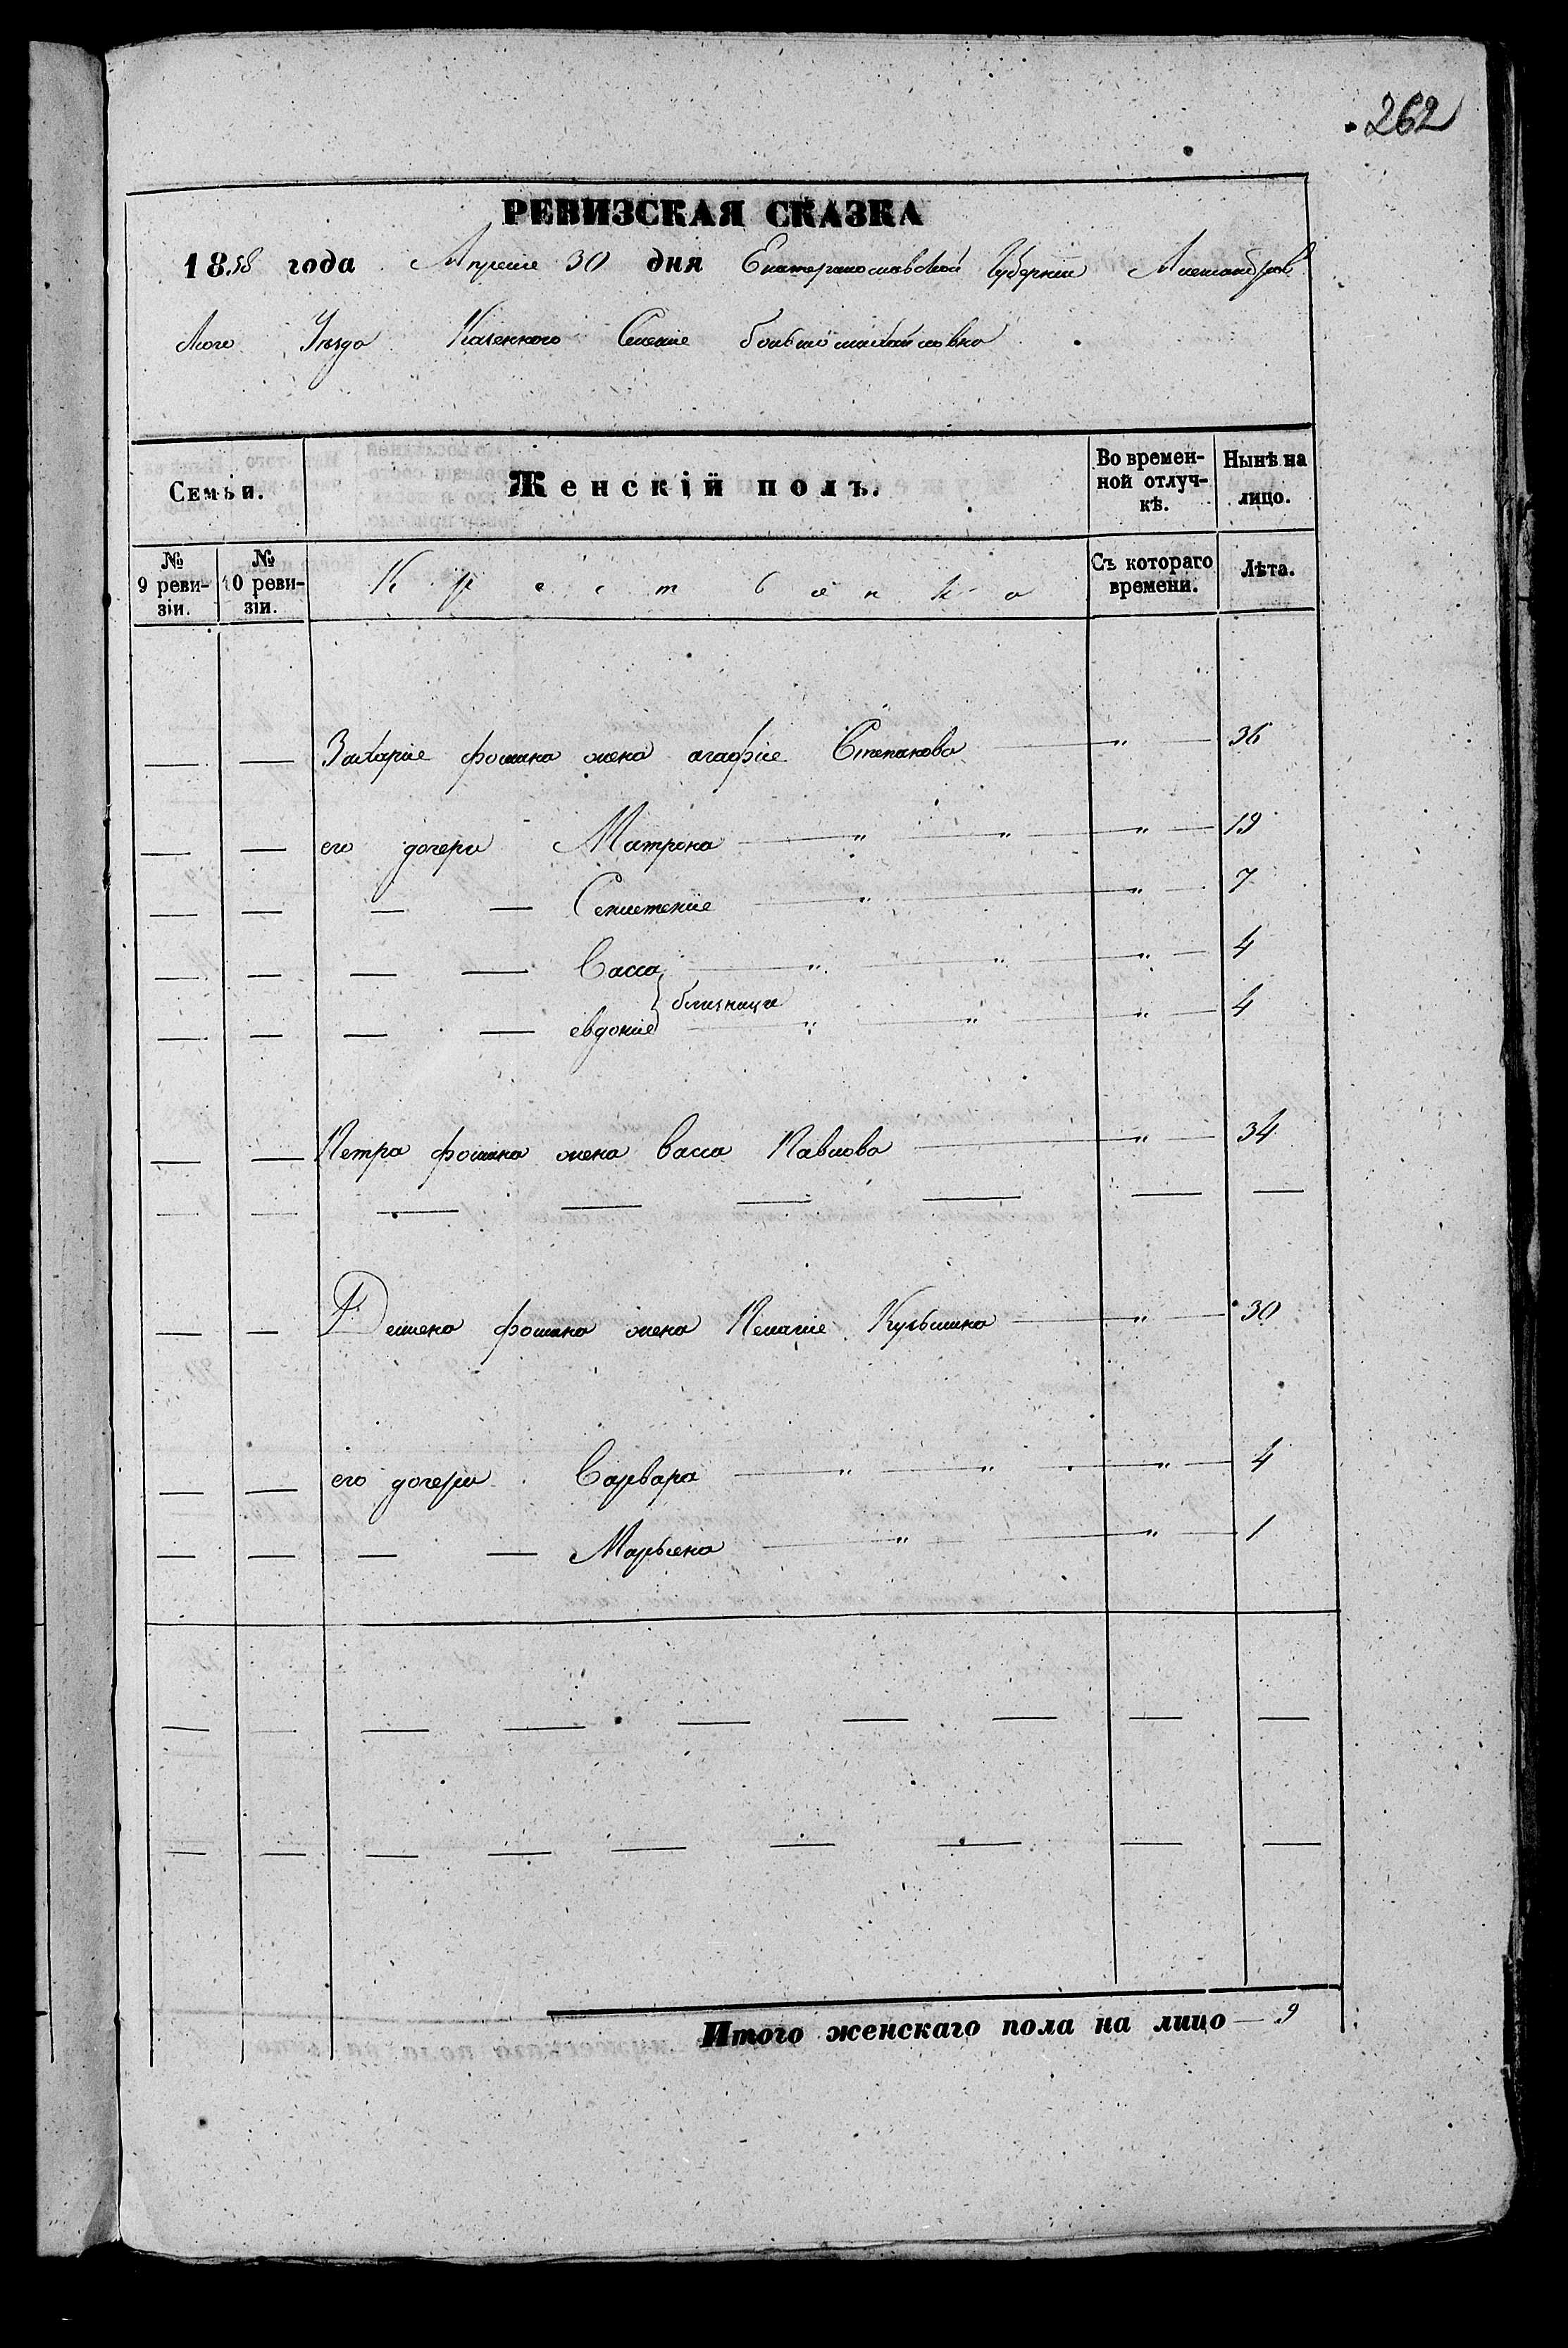 262
РЕВИЗСКАЯ СКАЗКА
1858 года Апреля 30 дня Екатеринославской Губернии Александров
ского Уезда Казенного Селение большо михайловка
Семьи. Женскій полъ. Во времен-ной отлуч-кѣ. Нынѣ на лицо.
№ 9 реви-зіи. № 10 реви-зіи. Съ котораго времени. Лѣта.
Захарие фомина жена агафие Степанова — " — 36
его дочери Матрона — " — " — " — 19
— — — — " — " — 7
— — — — Васса — " " — " — 4
близнаци
— — — — евдокие — " — " — " — 4
— — Петра фомина жена васса Павлова — " — 34
— — — — — — — —
— — фомина жена Пелагие Кузьмина — " — 30
— — его дочери Варвара — " — " — " — 4
— — — — Марьена — " — " — 1
— — — — — — — — —
— — — — — — — — —
Итого женскаго пола на лицо — 9